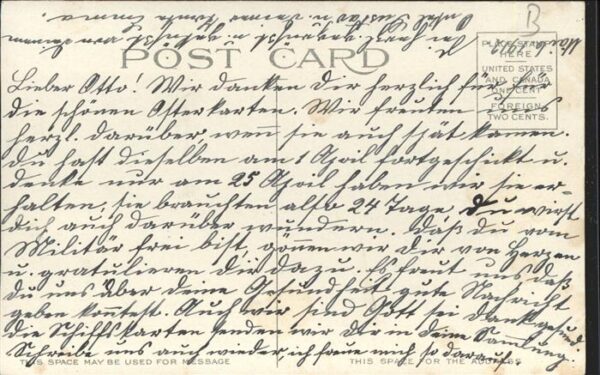 B
POST CARD
PLACE STAMP
HERE
UNITED STATES
AND CANADA
ONE CENT
FOREIGN
TWO CENTS.
Lieber Otto! Wir danken dir herzlich für
die schönen Osterkarten. Wir freuten uns
herzl. darüber, wenn sie auch spät kamen.
Du hast dieselben am 1 April fortgeschickt u.
denke nur am 25 April haben wir sie er-
halten, sie brauchten also 24 Tage. Du wirst
dich auch darüber wundern. Daß du vom
Militär frei bist, gönnen wir dir von Herzen
u. gratulieren dir dazu. Es freut uns daß
du uns über deine Gesundheit gute Nachricht
geben kontest. Auch wir sind Gott sei Dank gesund.
die Schiffskarten senden wir dir in deine Samlung.
Schreibe uns auch wieder, ich freue mich so darauf.
THIS SPACE MAY BE USED FOR MESSAGE
THIS SPACE FOR THE ADDRESS
Sei herzl. gegrüßt u. geküsst von
u. Tante Emma.